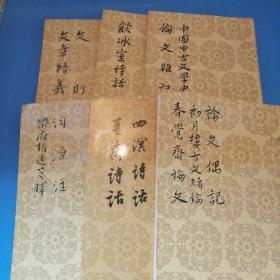 中國中古文學史
論文雜記
飲冰室詩話
文則
文章精義
論文偶記
初月樓古文緒論
春覺齋論文
四溟詩話
薑齋詩話
詞源注
樂府指迷箋釋